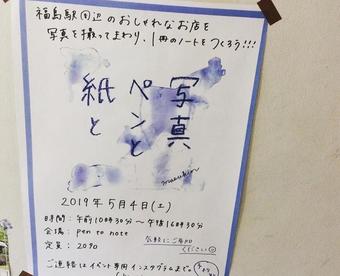 福島駅周辺のおしゃれなお店を
写真を撮ってまわり、1冊のノートをつくろう!!!
写真
ペンと
紙と
2019年5月4日(土)
時間:午前10時30分〜午後16時30分
会場:pen to note
定員:20名
ご連絡はイベント専用インスタグラムまで。